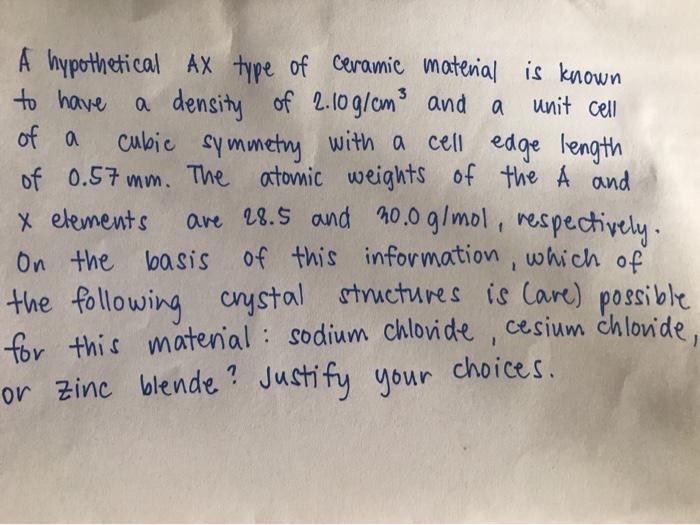 A hypothetical AX type of ceramic material is known
to have a density of 2.10 g/cm³ and a unit cell
of a cubic symmetry with a cell edge length
of 0.57 mm. The atomic weights of the A and
X elements are 28.5 and 30.0 g/mol, respectively.
On the basis of this information, which of
the following crystal structures is (are) possible
for this material: sodium chloride, cesium chloride,
or zinc blende? Justify your choices.